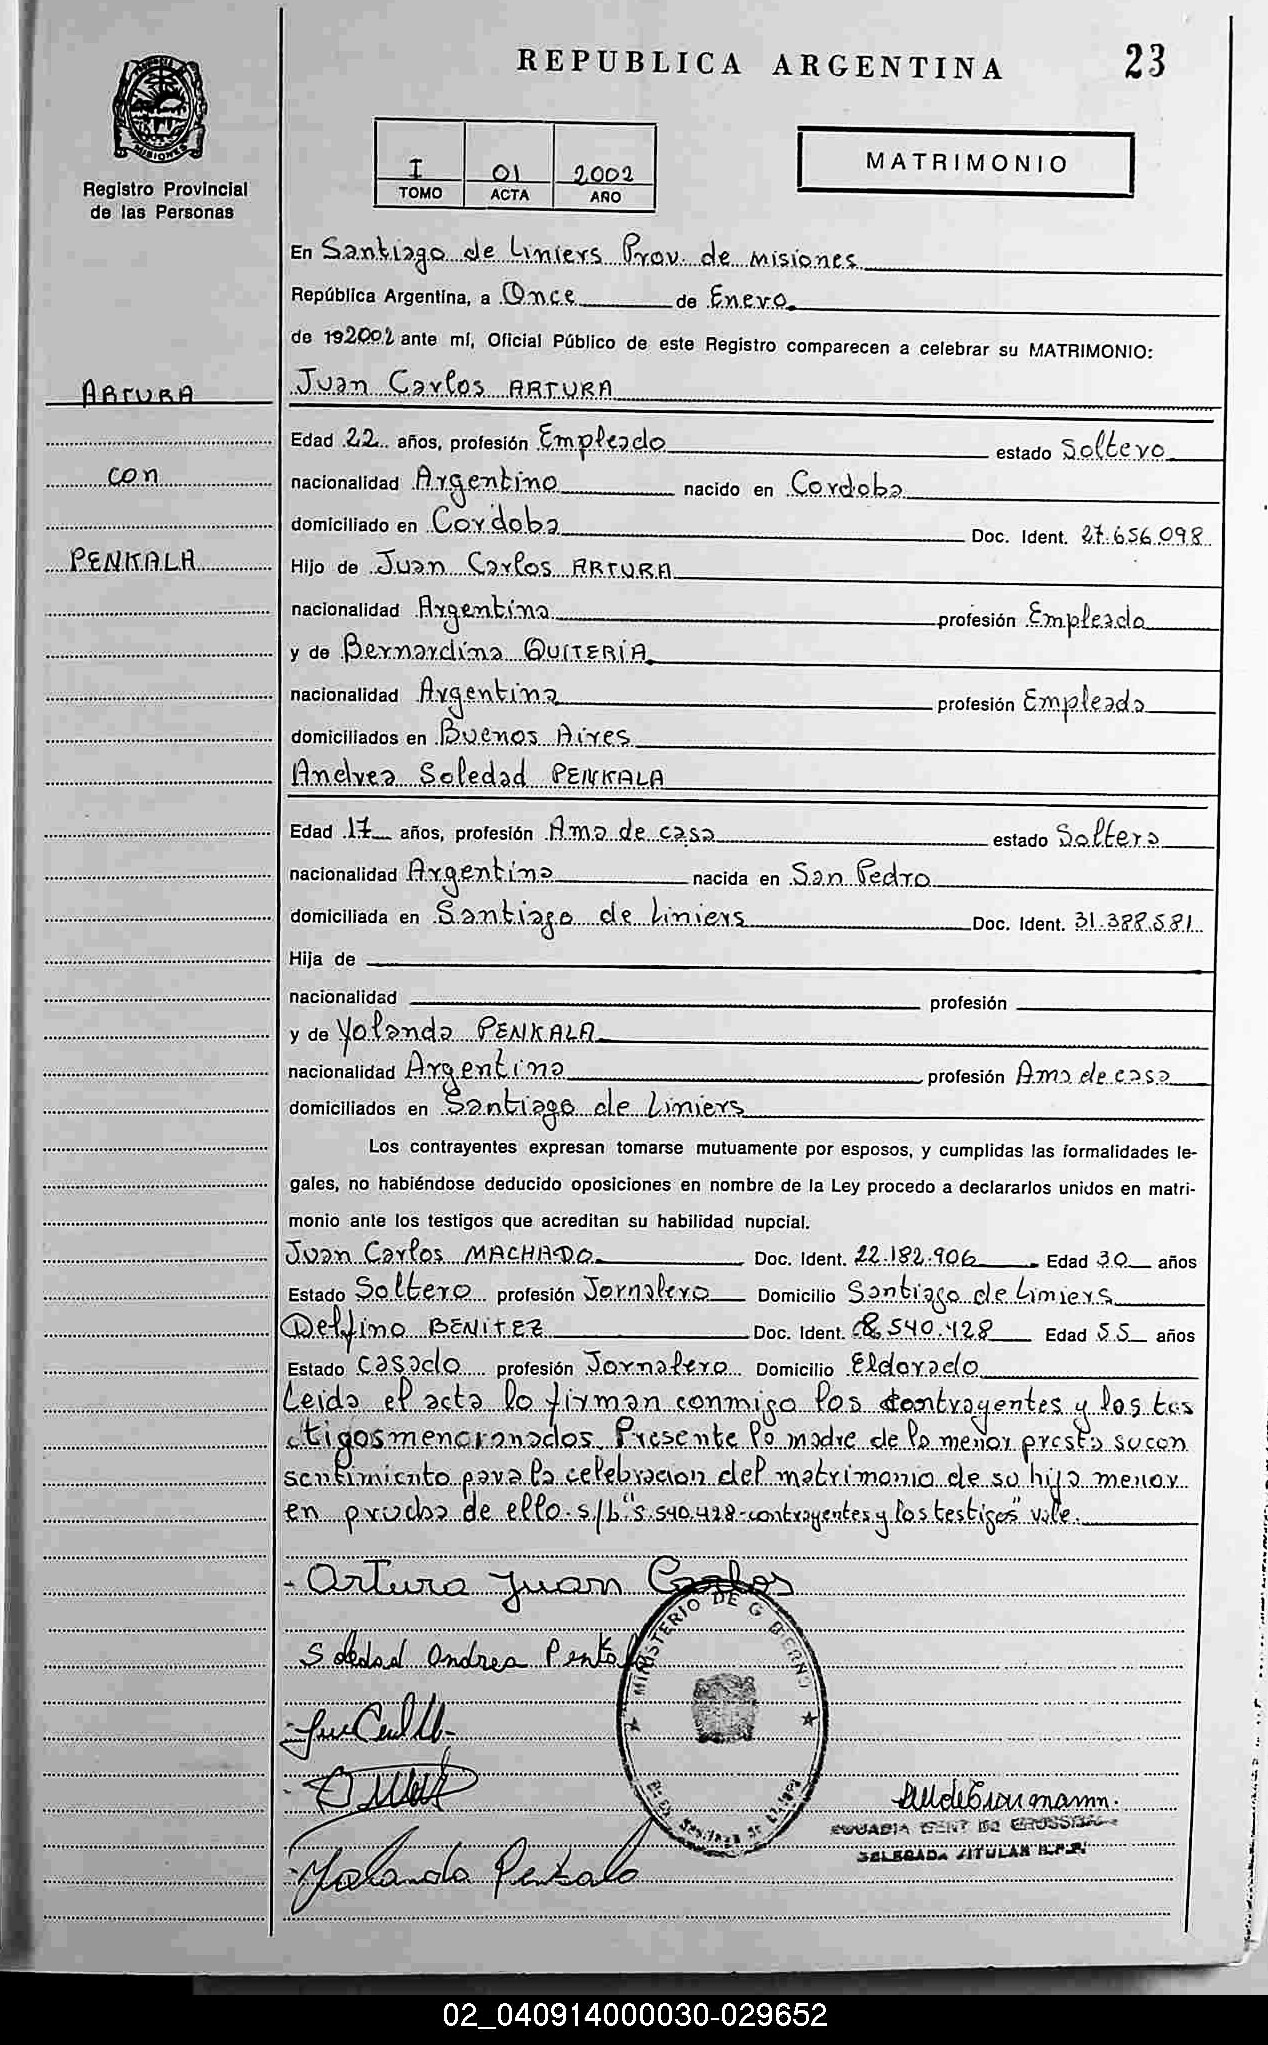 REPUBLICA ARGENTINA
23
MISIONES
Registro Provincial
de las Personas
I 01 2002
TOMO ACTA AÑO
MATRIMONIO
En Santiago de Liniers Prov. de Misiones
República Argentina, a Once de Enero
de 192002 ante mí, Oficial Público de este Registro comparecen a celebrar su MATRIMONIO:
ARTURA
Juan Carlos ARTURA
Edad 22 años, profesión Empleado estado Soltero
con
nacionalidad Argentino nacido en Cordoba
domiciliado en Cordoba Doc. Ident. 27.656.098
PENKALA
Hijo de Juan Carlos ARTURA
nacionalidad Argentina profesión Empleado
y de Bernardina QUITERIA
nacionalidad Argentina profesión Empleada
domiciliados en Buenos Aires
Andrea Soledad PENKALA
Edad 17 años, profesión Ama de casa estado Soltera
nacionalidad Argentina nacida en San Pedro
domiciliada en Santiago de Liniers Doc. Ident. 31.388.581
Hija de
nacionalidad profesión
y de Yolanda PENKALA
nacionalidad Argentina profesión Ama de casa
domiciliados en Santiago de Liniers
Los contrayentes expresan tomarse mutuamente por esposos, y cumplidas las formalidades le-
gales, no habiéndose deducido oposiciones en nombre de la Ley procedo a declararlos unidos en matri-
monio ante los testigos que acreditan su habilidad nupcial.
Juan Carlos MACHADO Doc. Ident. 22.182.906 Edad 30 años
Estado Soltero profesión Jornalero Domicilio Santiago de Liniers
Delfino BENITEZ Doc. Ident. 8.540.428 Edad 55 años
Estado casado profesión Jornalero Domicilio Eldorado
Leida el acta lo firman conmigo los contrayentes y los tes
tigos mencionados. Presente la madre de la menor presta su con
sentimiento para la celebracion del matrimonio de su hija menor
en prueba de ello. s/b "8.540.428-contrayentes y los testigos" vale.
Artura Juan Carlos
Soledad Andrea Penkala
MINISTERIO DE GOBIERNO
Yolanda Penkala
DELEGADA TITULAR R.P.P.
02_040914000030-029652